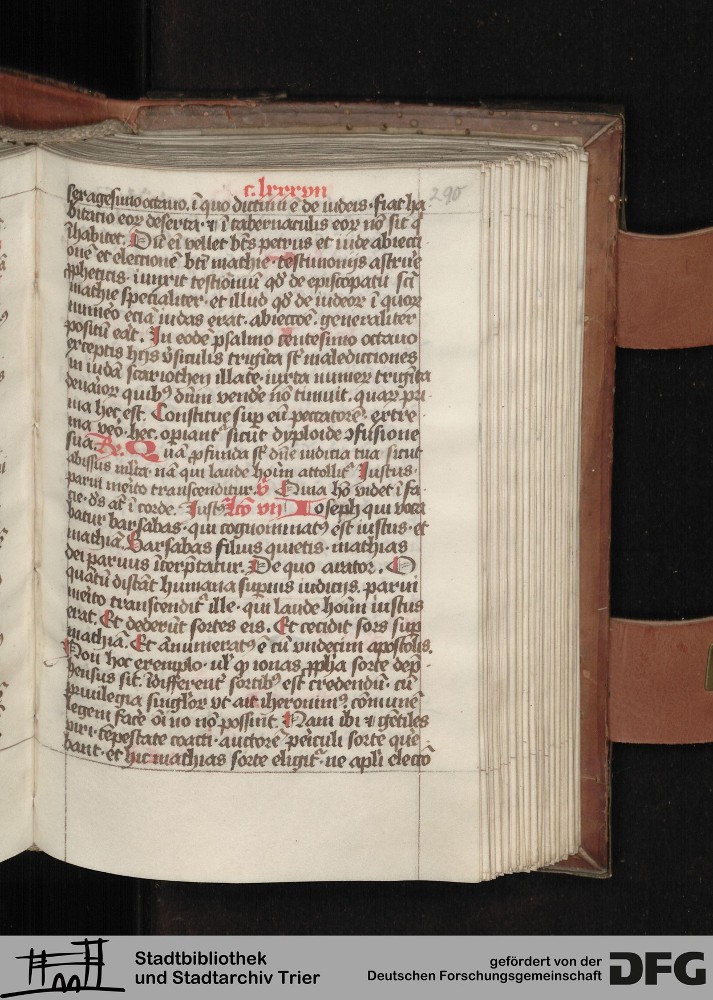 c. lxxxvii
290
sexagesimo octauo. ī quo dictum ē de iudeis. fiat ha
bitatio eoꝝ deserta. ⁊ ī tabernaculis eoꝝ nō sit q̄
īhabitet. Dū eī vellet btūs petrus et iude abiecti
onē et electionē btī mathie testimonijs astrue
ꝓpheticis. iunxit testīoniū qd̓ de episcopatu scī
mathie specialiter. et illud qd̓ de iudeoꝝ ī quoꝝ
numēo ecia iudas erat. abiectoē. generaliter
positū eāt. In eodē psalmo centesimo octauo
exceptis hijs v̓siculis triginta st̄ maledictiones
in iudā scariothen illate. iuxta numeꝝ trigīta
denarioꝝ quibꝰ dūm vende nō timuit. quaꝝ pri
ma hec est. Constitue suꝑ eū peccatorē. extre
ma veo. hec. opianť sicut dyploide ↄfusione
suā. Rx. Quā ꝓfunda st̄ dn̄e iudicia tua sicut
abissus mlta. nā qui laude hoīm attollit Iustus.
parui meīto transcenditur. v̓ Quia hō videt ī fa
cie. ds̓ at̄ ī corde. Iustꝰ Lcō vij Ioseph qui voca
batur barsabas. qui cognominatꝰ est iustus. et
mathiā. Barsabas filius quietis. mathias
dei paruus īterp̄tatur. De quo arator. O
quātū distāt humana supinis iudicijs. parui
meīto transcendit ille. qui laude hoīm iustus
erat. Et dederūt sortes eis. Et cecidit sors suꝑ
mathiā. Et ānumeratꝰ ē cū vndecim apostolis.
Non hoc exemplo. ul̓ ꝙ ionas ꝓph̄a sorte dep̄
hensus sit. īdifferent̄ sortibꝰ est credendū. cū
priuilegia singl̓oꝝ vt ait iheronimꝰ. cōmunē
legem face oīno nō possūt. Nam ibi ⁊ gētiles
viri. tēpestate coacti. auctorē peīculi sorte que
bant. et hic mathias sorte eligit̄. ne apl̓i electō
Stadtbibliothek
und Stadtarchiv Trier
gefördert von der
Deutschen Forschungsgemeinschaft
DFG